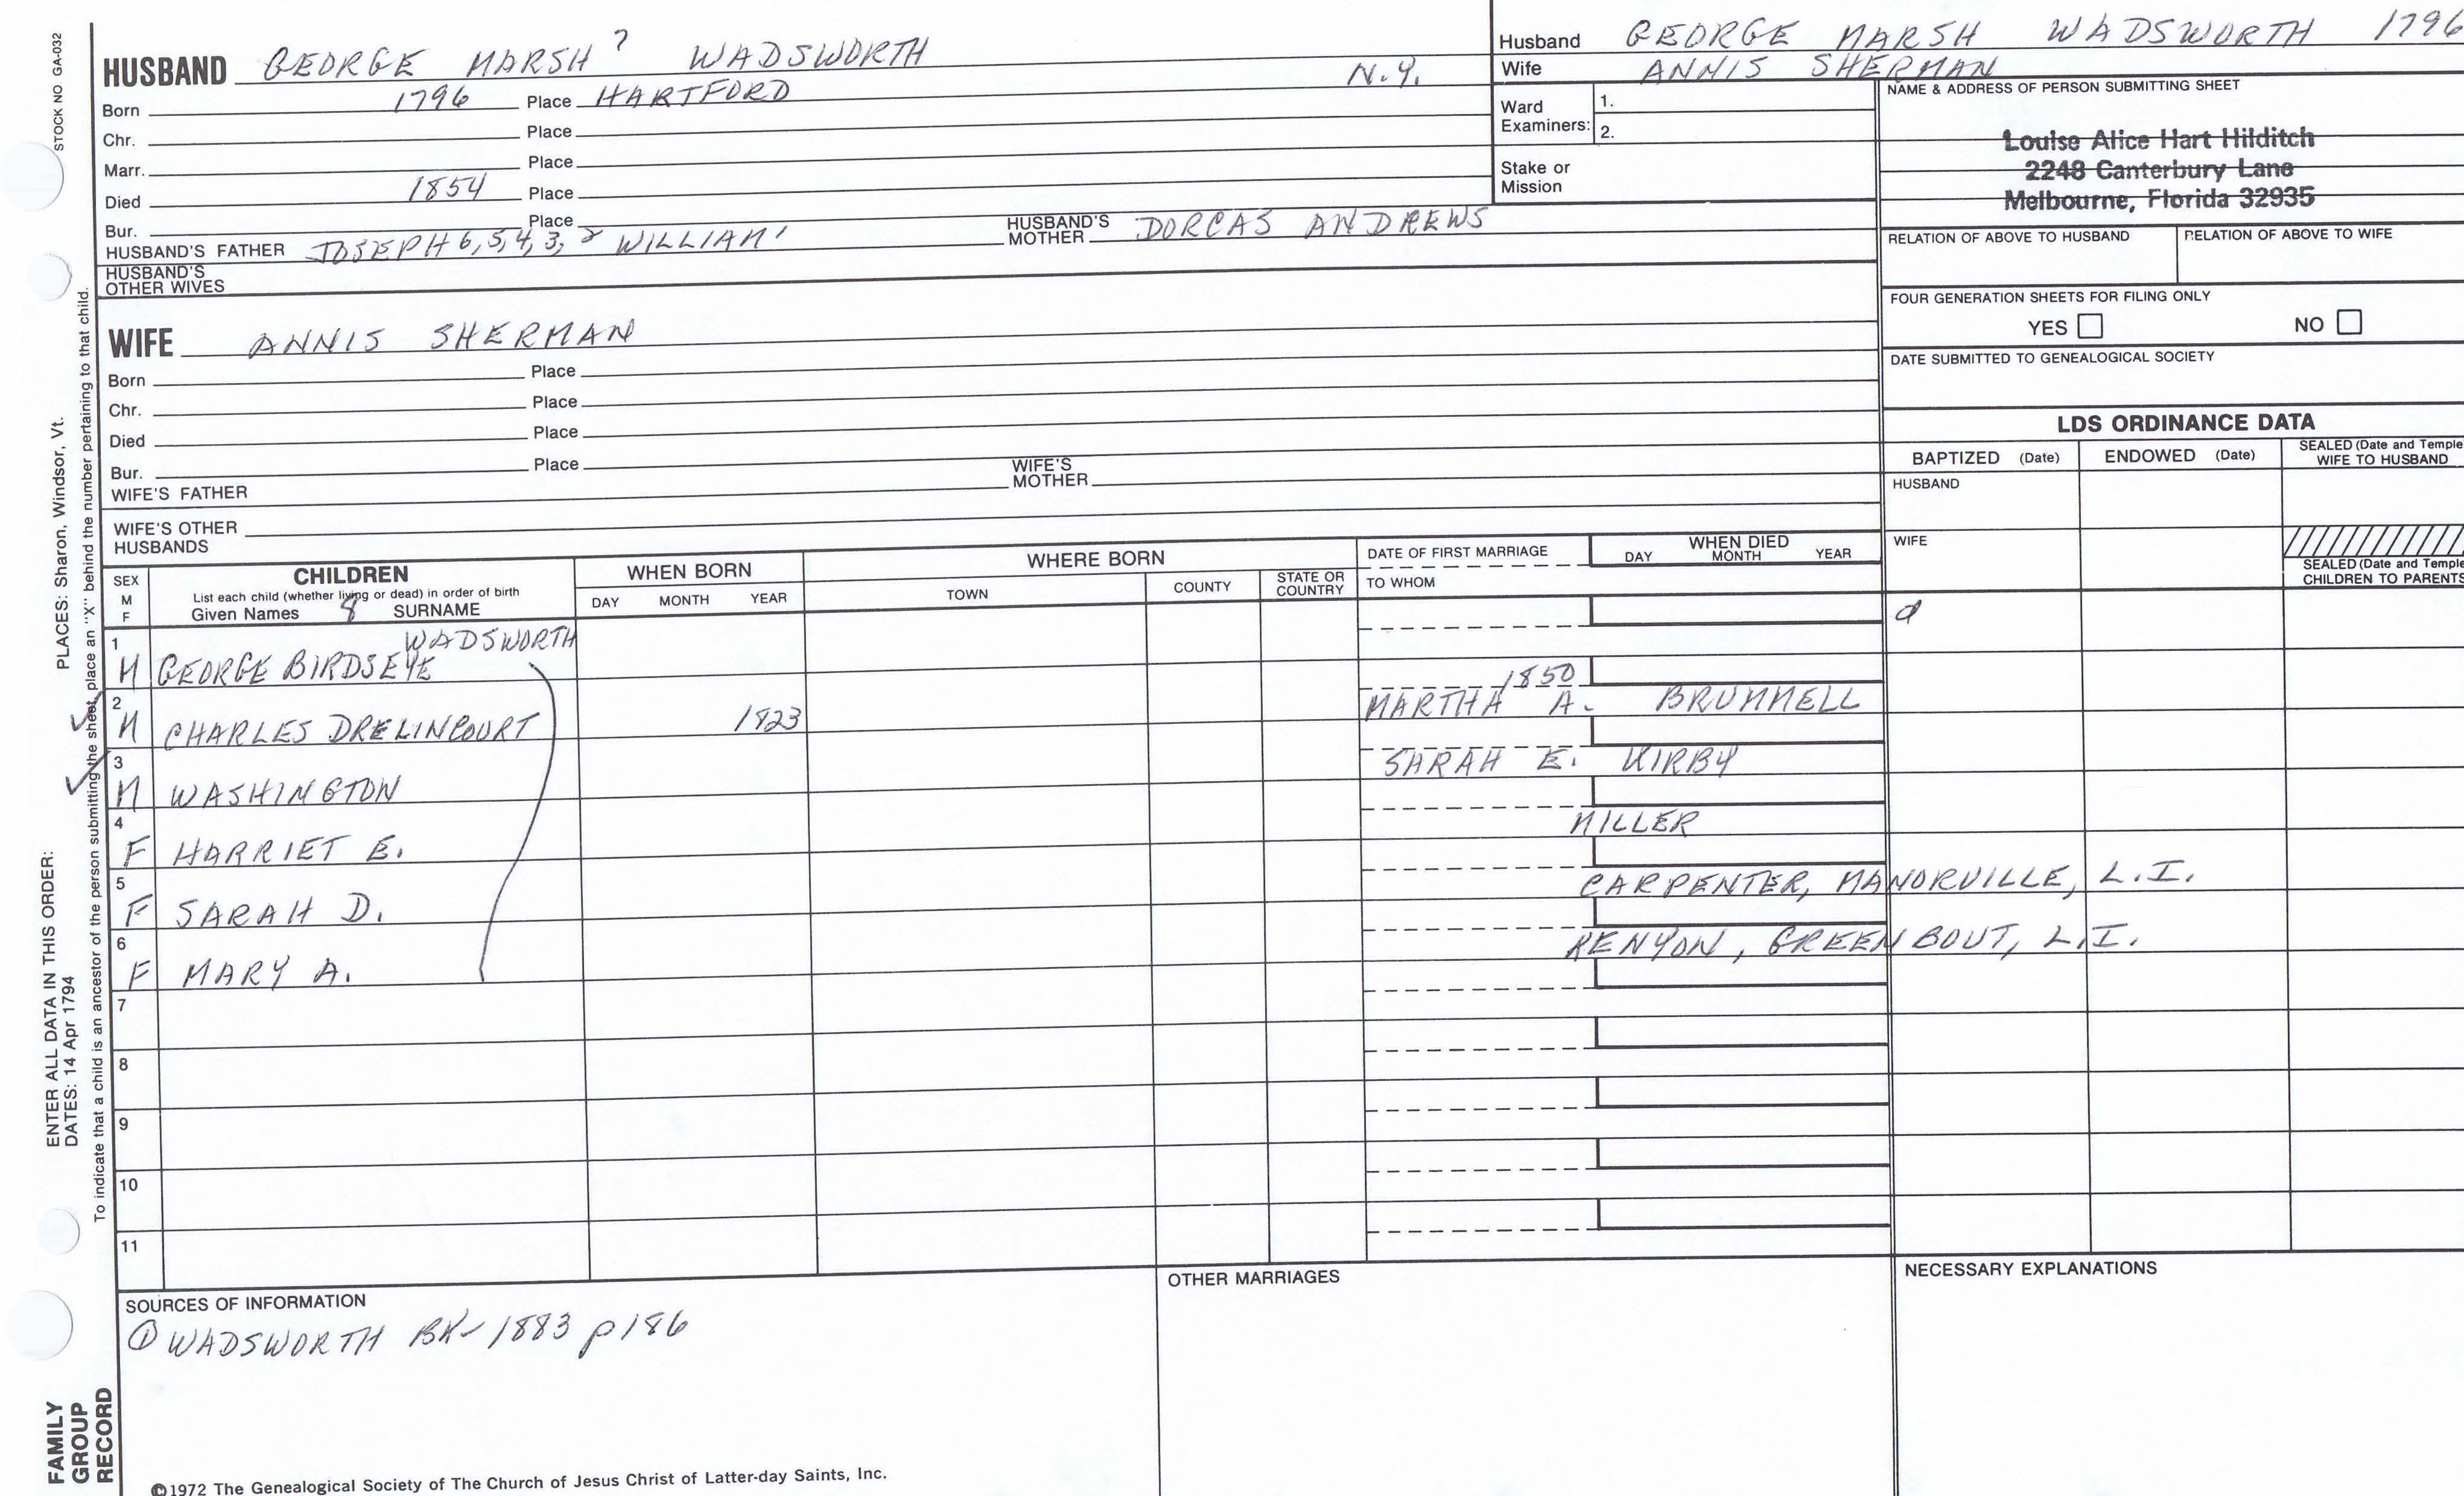 STOCK NO GA-032
HUSBAND GEORGE MARSH 7 WADSWORTH
Born 1796 Place HARTFORD N.Y.
Chr. Place
Marr. Place
Died 1854 Place
Bur. Place
HUSBAND'S FATHER JOSEPH 6, 5, 4, 3, 2 WILLIAM 1 HUSBAND'S MOTHER DORCAS ANDREWS
HUSBAND'S OTHER WIVES
Husband GEORGE MARSH WADSWORTH 1796
Wife ANNIS SHERMAN
Ward Examiners: 1.
2.
Stake or Mission
NAME & ADDRESS OF PERSON SUBMITTING SHEET
Louise Alice Hart Hilditch
2248 Canterbury Lane
Melbourne, Florida 32935
RELATION OF ABOVE TO HUSBAND RELATION OF ABOVE TO WIFE
FOUR GENERATION SHEETS FOR FILING ONLY
YES NO
DATE SUBMITTED TO GENEALOGICAL SOCIETY
WIFE ANNIS SHERMAN
Born Place
Chr. Place
Died Place
Bur. Place
WIFE'S FATHER WIFE'S MOTHER
WIFE'S OTHER HUSBANDS
LDS ORDINANCE DATA
BAPTIZED (Date) ENDOWED (Date) SEALED (Date and Temple) WIFE TO HUSBAND
HUSBAND
WIFE
SEALED (Date and Temple) CHILDREN TO PARENTS
SEX M F
CHILDREN
List each child (whether living or dead) in order of birth
Given Names 8 SURNAME
WHEN BORN
DAY MONTH YEAR
WHERE BORN
TOWN COUNTY STATE OR COUNTRY
DATE OF FIRST MARRIAGE
TO WHOM
WHEN DIED
DAY MONTH YEAR
WADSWORTH
1 M GEORGE BIRDSEYE
1850
2 M CHARLES DRELINCOURT 1823 MARTHA A. BRUMMELL
3 M WASHINGTON SARAH E. KIRBY
4 F HARRIET E. MILLER
5 F SARAH D. CARPENTER, MANORVILLE, L.I.
6 F MARY A. KENYON, GREENBOUT, L.I.
7
8
9
10
11
SOURCES OF INFORMATION
① WADSWORTH BK- 1883 p186
OTHER MARRIAGES
NECESSARY EXPLANATIONS
©1972 The Genealogical Society of The Church of Jesus Christ of Latter-day Saints, Inc.
FAMILY GROUP RECORD
ENTER ALL DATA IN THIS ORDER:
DATES: 14 Apr 1794
PLACES: Sharon, Windsor, Vt.
To indicate that a child is an ancestor of the person submitting the sheet, place an "X" behind the number pertaining to that child.